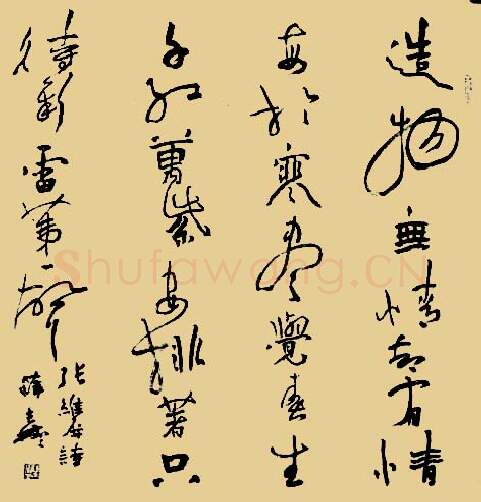 造物無情却有情
每於寒盡覺春生
千紅萬紫安排著只
待新雷第一聲
張維屏詩
Shufawang.CN